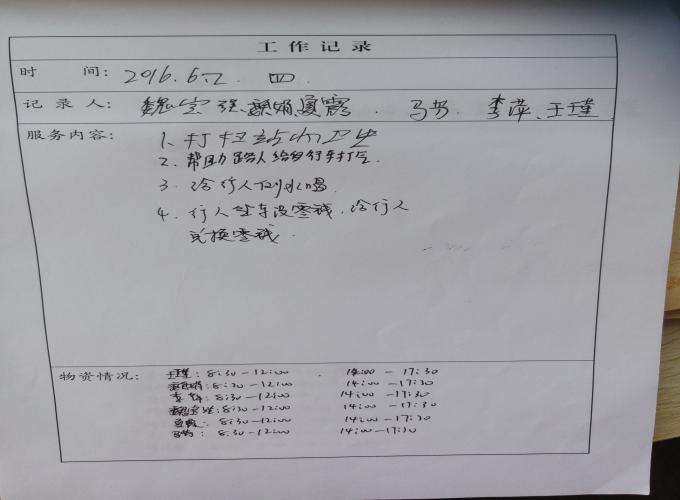 工作记录
时 间: 2016.6.2. 四.
记录人: 魏宝强 夏霞. 马芳. 李萍、王瑾
服务内容: 1. 打扫站内卫生
2. 帮助路人给自行车打气
3. 给行人倒水喝
4. 行人坐车没零钱,给行人
兑换零钱.
物资情况: 王瑾: 8:30-12:00 14:00-17:30
8:30-12:00 14:00-17:30
李萍: 8:30-12:00 14:00-17:30
魏宝强: 8:30-12:00 14:00-17:30
夏霞: 8:30-12:00 14:00-17:30
马芳: 8:30-12:00 14:00-17:30